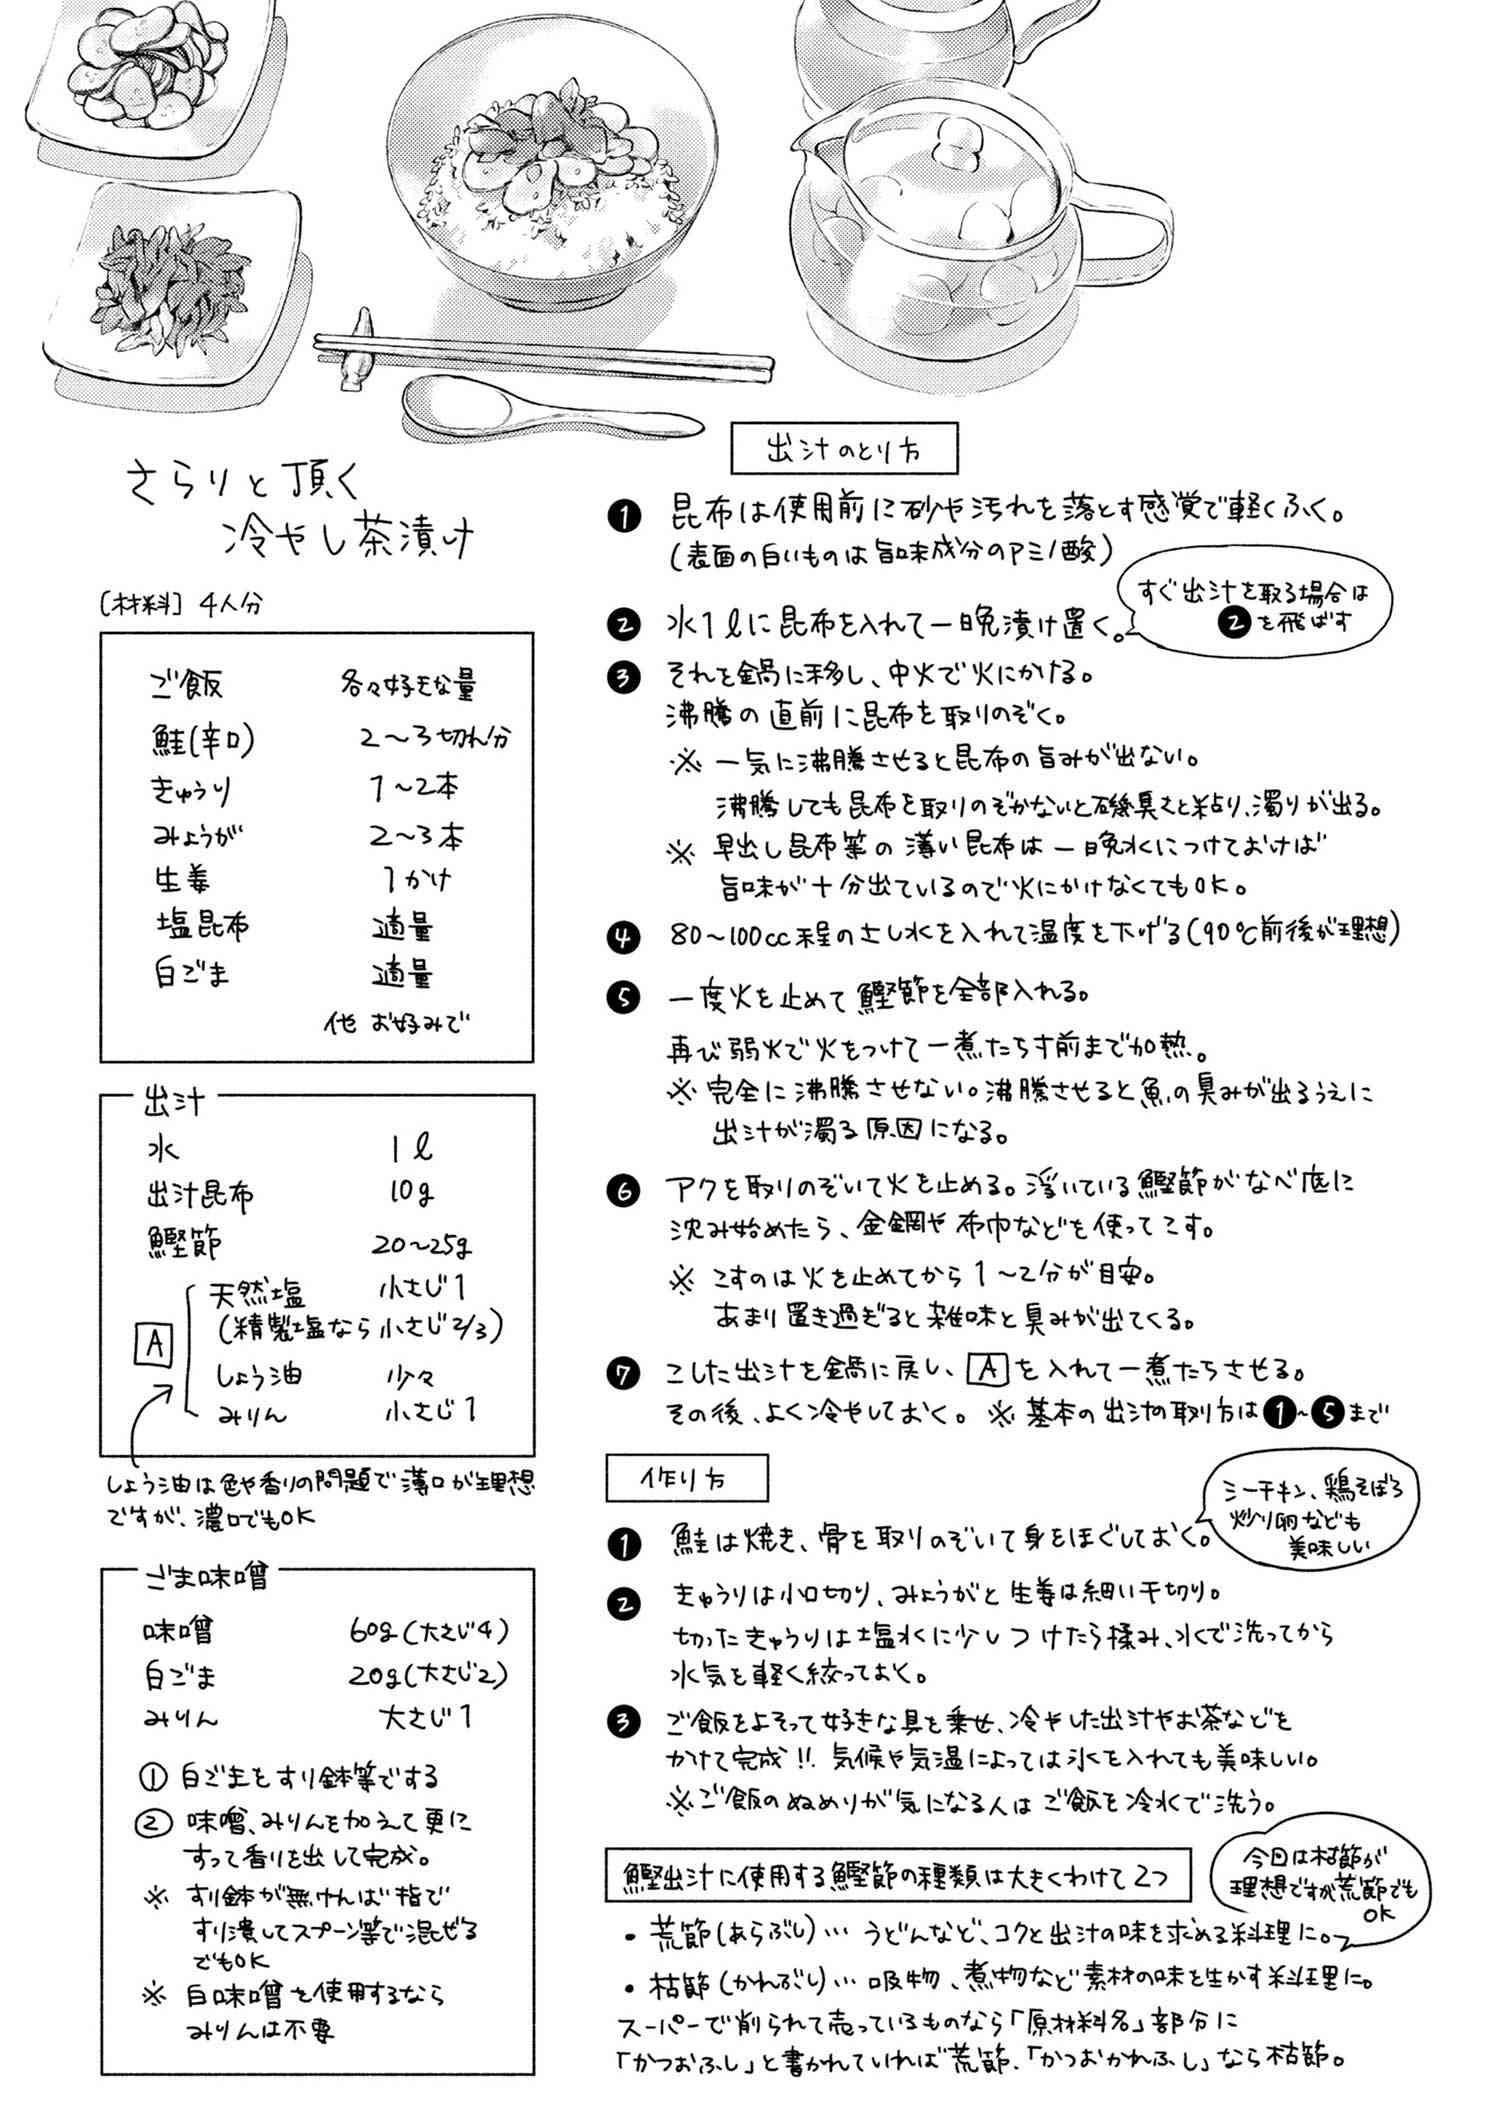 さらりと頂く
冷やし茶漬け
〔材料〕4人分
ご飯 各々好きな量
鮭(辛口) 2〜3切れ分
きゅうり 1〜2本
みょうが 2〜3本
生姜 1かけ
塩昆布 適量
白ごま 適量
他 お好みで
出汁
水 1ℓ
出汁昆布 10g
鰹節 20〜25g
A
天然塩 小さじ1
(精製塩なら小さじ2/3)
しょう油 少々
みりん 小さじ1
しょう油は色や香りの問題で薄口が理想
ですが、濃口でもOK
ごま味噌
味噌 60g(大さじ4)
白ごま 20g(大さじ2)
みりん 大さじ1
① 白ごまをすり鉢等でする
② 味噌、みりんを加えて更に
すって香りを出して完成。
※ すり鉢が無ければ指で
すり潰してスプーン等で混ぜる
でもOK
※ 白味噌を使用するなら
みりんは不要
出汁のとり方
❶ 昆布は使用前に砂や汚れを落とす感覚で軽くふく。
(表面の白いものは旨味成分のアミノ酸)
❷ 水1ℓに昆布を入れて一晩漬け置く。
すぐ出汁を取る場合は
❷を飛ばす
❸ それを鍋に移し、中火で火にかける。
沸騰の直前に昆布を取りのぞく。
※ 一気に沸騰させると昆布の旨みが出ない。
沸騰しても昆布を取りのぞかないと磯臭さと粘り、濁りが出る。
※ 早出し昆布等の薄い昆布は一晩水につけておけば
旨味が十分出ているので火にかけなくてもOK。
❹ 80〜100cc程のさし水を入れて温度を下げる(90℃前後が理想)
❺ 一度火を止めて鰹節を全部入れる。
再び弱火で火をつけて一煮たち寸前まで加熱。
※ 完全に沸騰させない。沸騰させると魚の臭みが出るうえに
出汁が濁る原因になる。
❻ アクを取りのぞいて火を止める。浮いている鰹節がなべ底に
沈み始めたら、金網や布巾などを使ってこす。
※ こすのは火を止めてから1〜2分が目安。
あまり置き過ぎると雑味と臭みが出てくる。
❼ こした出汁を鍋に戻し、Aを入れて一煮たちさせる。
その後、よく冷やしておく。※ 基本の出汁の取り方は❶〜❺まで
作り方
❶ 鮭は焼き、骨を取りのぞいて身をほぐしておく。
シーチキン、鶏そぼろ
炒り卵なども
美味しい
❷ きゅうりは小口切り、みょうがと生姜は細い千切り。
切ったきゅうりは塩水に少しつけたら揉み、水で洗ってから
水気を軽く絞っておく。
❸ ご飯をよそって好きな具を乗せ、冷やした出汁やお茶などを
かけて完成!! 気候や気温によっては氷を入れても美味しい。
※ご飯のぬめりが気になる人はご飯を冷水で洗う。
鰹出汁に使用する鰹節の種類は大きくわけて2つ
今日は枯節が
理想ですが荒節でも
OK
・荒節(あらぶし)… うどんなど、コクと出汁の味を求める料理に。
・枯節(かれぶし)… 吸物、煮物など素材の味を生かす料理に。
スーパーで削られて売っているものなら「原材料名」部分に
「かつおふし」と書かれていれば荒節、「かつおかれふし」なら枯節。